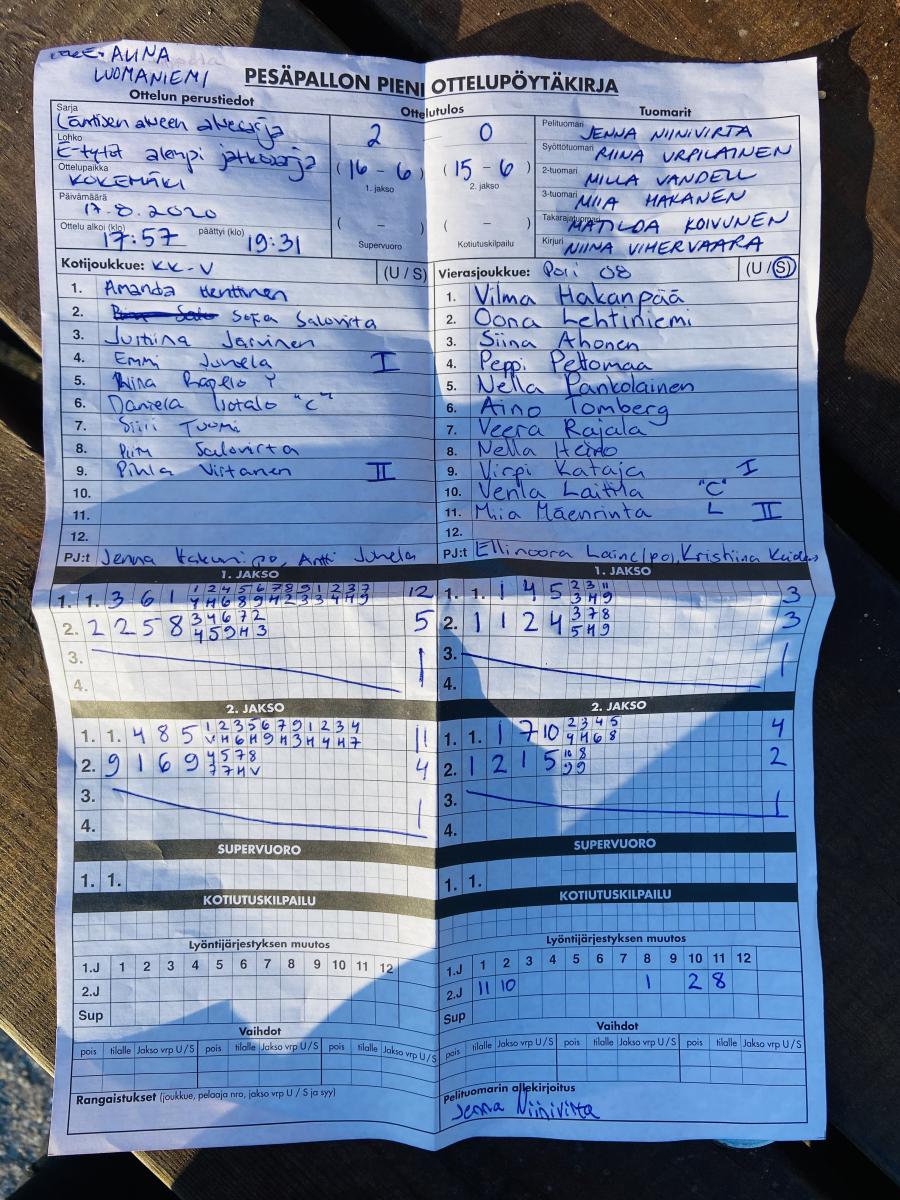 ALINA
LUOMANIEMI
PESÄPALLON PIENI OTTELUPÖYTÄKIRJA
Ottelun perustiedot
Sarja
Läntisen alueen aluesarja
Lohko
E-tytöt alempi jatkosarja
Ottelupaikka
KOKEMÄKI
Päivämäärä
17.8.2020
Ottelu alkoi (klo) 17:57 päättyi (klo) 19:31
Ottelutulos
2 0
(16 - 6) (15 - 6)
1. jakso 2. jakso
( - ) ( - )
Supervuoro Kotiutuskilpailu
Tuomarit
Pelituomari JENNA NIINIVIRTA
Syöttötuomari RIINA URPILAINEN
2-tuomari MILLA VANDELL
3-tuomari MIIA HAKANEN
Takarajatuomari MATILDA KOIVUNEN
Kirjuri NIINA VIHERVAARA
Kotijoukkue: KK-V (U / S)
1. Amanda Henttinen
2. Sofia Salovirta
3. Justiina Järvinen
4. Emmi Junela I
5.
6. Daniela Isotalo "C"
7. Siiri Tuomi
8. Salovirta
9. Pihla Virtanen II
10.
11.
12.
PJ:t Jenna Antti Junela
Vierasjoukkue: Pori 08 (U / S)
1. Vilma Hakanpää
2. Oona Lehtiniemi
3. Siina Ahonen
4. Peppi Peltomaa
5. Nella Pankolainen
6. Aino Tomberg
7. Veera Rajala
8. Nella Heino
9. Virpi Kataja I
10. Venla Laitila "C"
11. Miia Mäenrinta L II
12.
PJ:t Ellinoora Laine (po), Kristiina
1. JAKSO
1. 1. 3 6 1 12
2. 2 2 5 8 3 4 6 7 2 5
4 5 9 H 3
3. 1
4.
1. JAKSO
1. 1. 1 4 5 2 3 11 3
3 H 9
2. 1 1 2 4 3 7 8 3
5 H 9
3. 1
4.
2. JAKSO
1. 1. 4 8 5 1 2 3 5 6 7 9 1 2 3 4 11
V H 6 H 9 H 3 H 4 H 7
2. 9 1 6 9 4 5 7 8 4
7 7 H V
3. 1
4.
2. JAKSO
1. 1. 1 7 10 2 3 4 5 4
4 H 6 8
2. 1 2 1 5 10 8 2
9 9
3. 1
4.
SUPERVUORO
1. 1.
SUPERVUORO
1. 1.
KOTIUTUSKILPAILU
KOTIUTUSKILPAILU
Lyöntijärjestyksen muutos
1.J 1 2 3 4 5 6 7 8 9 10 11 12
2.J
Sup
Lyöntijärjestyksen muutos
1.J 1 2 3 4 5 6 7 8 9 10 11 12
2.J 11 10 1 2 8
Sup
Vaihdot
pois tilalle Jakso vrp U / S pois tilalle Jakso vrp U / S pois tilalle Jakso vrp U / S
Vaihdot
pois tilalle Jakso vrp U / S pois tilalle Jakso vrp U / S pois tilalle Jakso vrp U / S
Rangaistukset (joukkue, pelaaja nro, jakso vrp U / S ja syy)
Pelituomarin allekirjoitus
Jenna Niinivirta